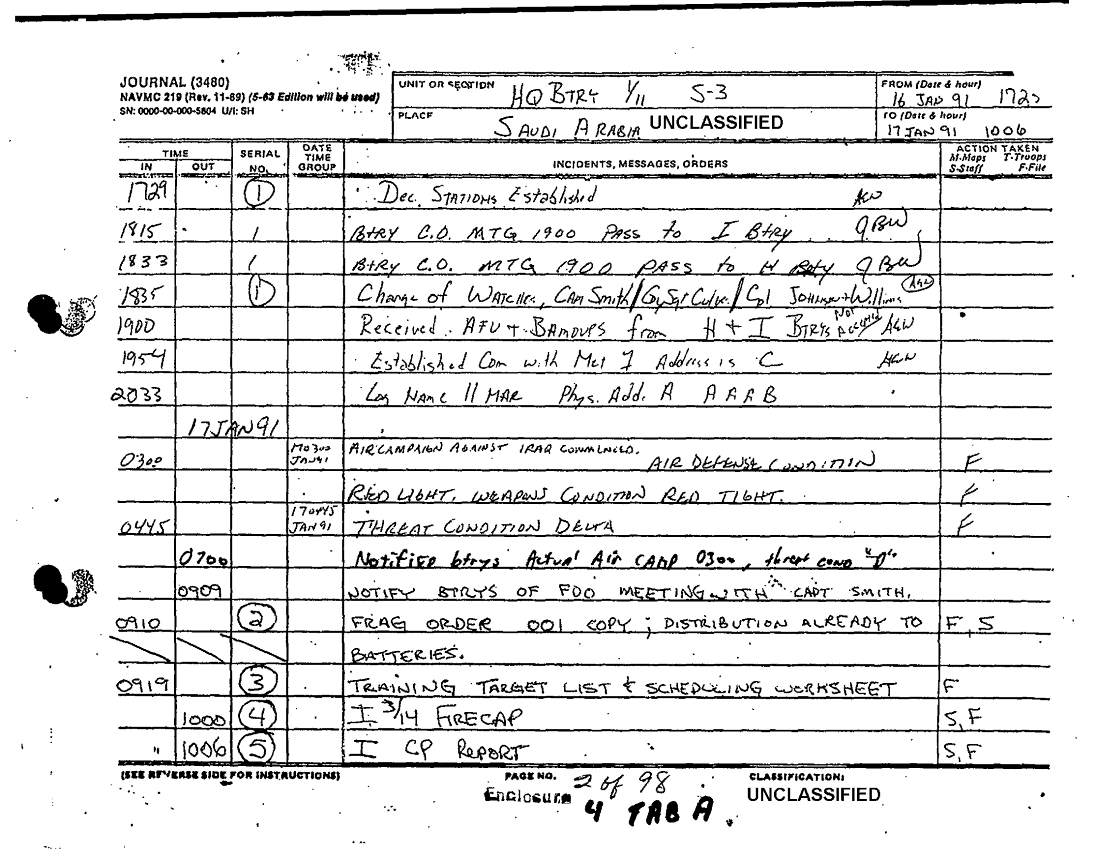 JOURNAL (3480)
NAVMC 219 (Rev. 11-69) (5-63 Edition will be used)
SN: 0000-00-000-5804 U/I: SH
UNIT OR SECTION HQ BTRY 1/11 S-3
FROM (Date & hour)
16 JAN 91
PLACE SAUDI ARABIA UNCLASSIFIED
TO (Date & hour)
17 JAN 91 1006
TIME
IN OUT
SERIAL NO.
DATE TIME GROUP
INCIDENTS, MESSAGES, ORDERS
ACTION TAKEN
M-Maps T-Troops
S-Staff F-File
1729 1 Dec. Stations Established AGW
1815 1 BTRY C.O. MTG 1900 PASS to I Btry
1833 1 BTRY C.O. MTG 1900 PASS to H
1835 1 Change of Watches, Capt Smith/GySgt /Cpl Johnson + Williams AGW
1900 Received AFU + from H + I BTRYS Not AGW
1954 Established Com with Met I Address is C AGW
2033 Log Name 11 MAR Phys. Add. A A A A B
17 JAN 91
0300 170300 JAN 91 AIR CAMPAIGN AGAINST IRAQ COMMENCED.
AIR DEFENSE CONDITION F
RED LIGHT. WEAPONS CONDITION RED TIGHT. F
0445 170445 JAN 91 THREAT CONDITION DELTA F
0700 Notified btrys Actual Air CAMP 0300, threat cond "D"
0909 NOTIFY BTRYS OF FDO MEETING WITH CAPT SMITH.
0910 2 FRAG ORDER 001 COPY ; DISTRIBUTION ALREADY TO F, S
BATTERIES.
0919 3 TRAINING TARGET LIST & SCHEDULING WORKSHEET F
1000 4 I 3/14 FIRECAP S, F
" 1006 5 I CP REPORT S, F
(SEE REVERSE SIDE FOR INSTRUCTIONS)
PAGE NO. 2 of 98
CLASSIFICATION:
Enclosure
UNCLASSIFIED
4 TAB A.